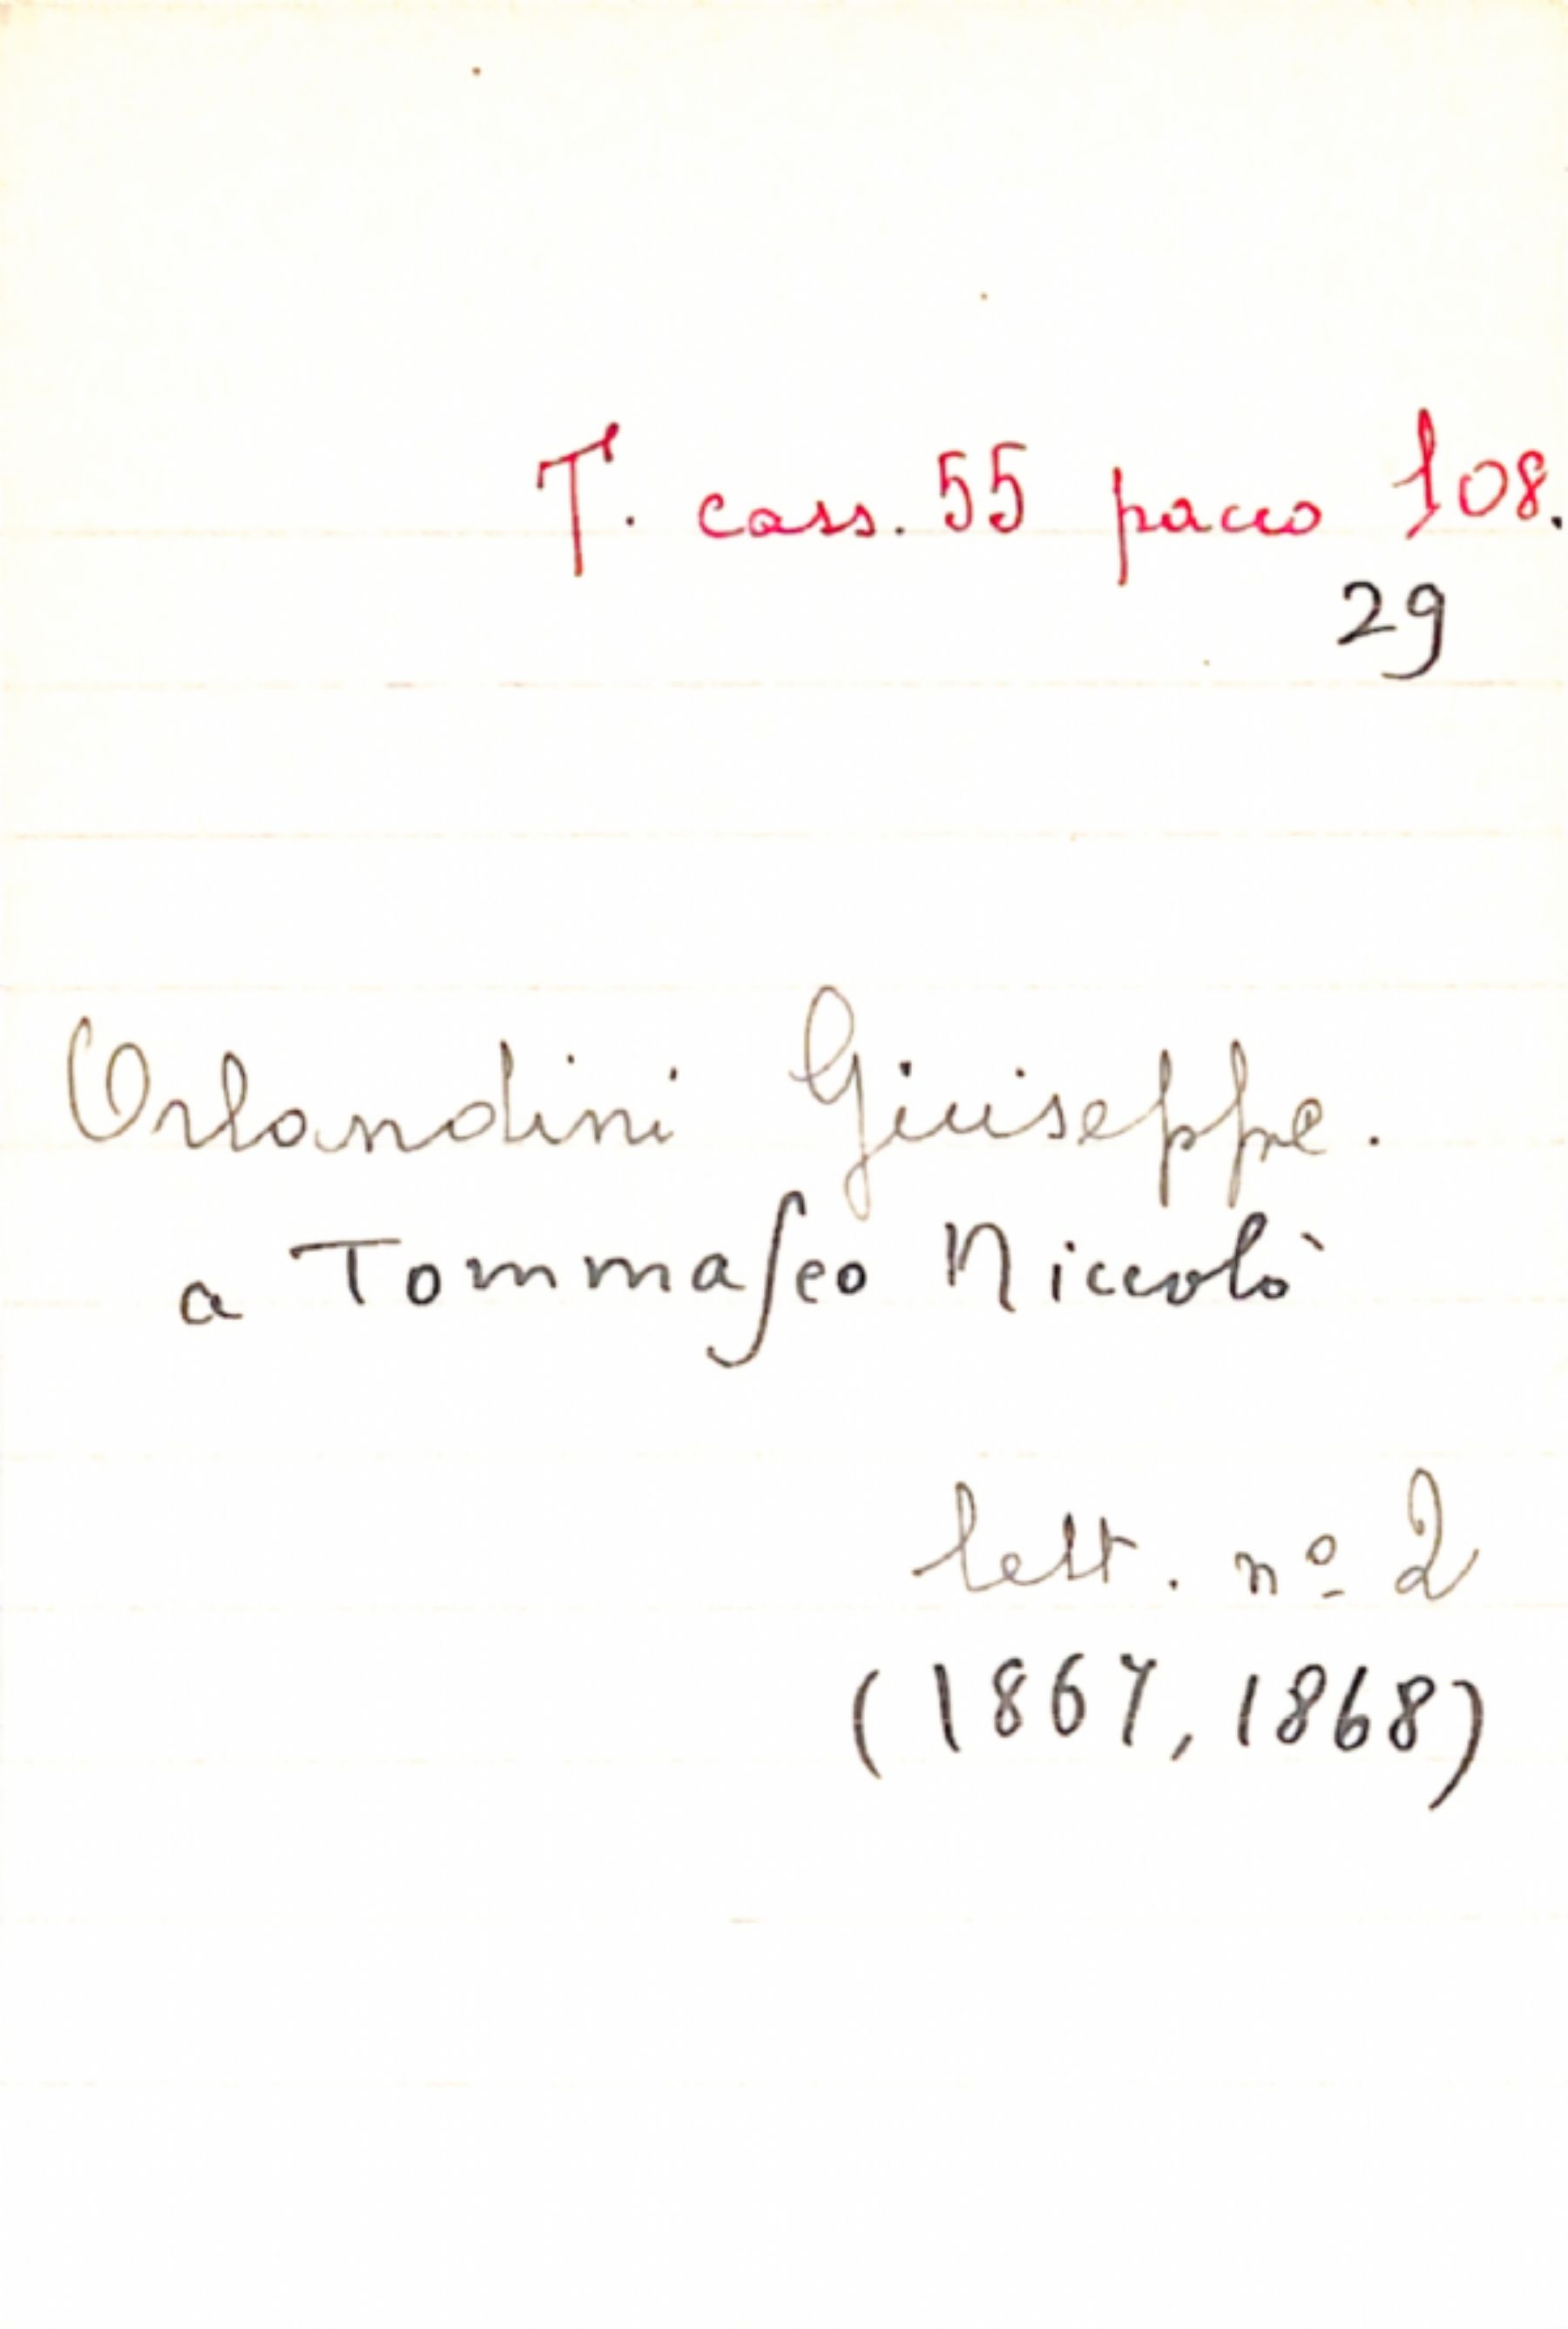 T. cass. 55 pacco 108.
29
Orlandini Giuseppe.
a Tommaſeo Niccolò
lett. nº 2
(1867, 1868)